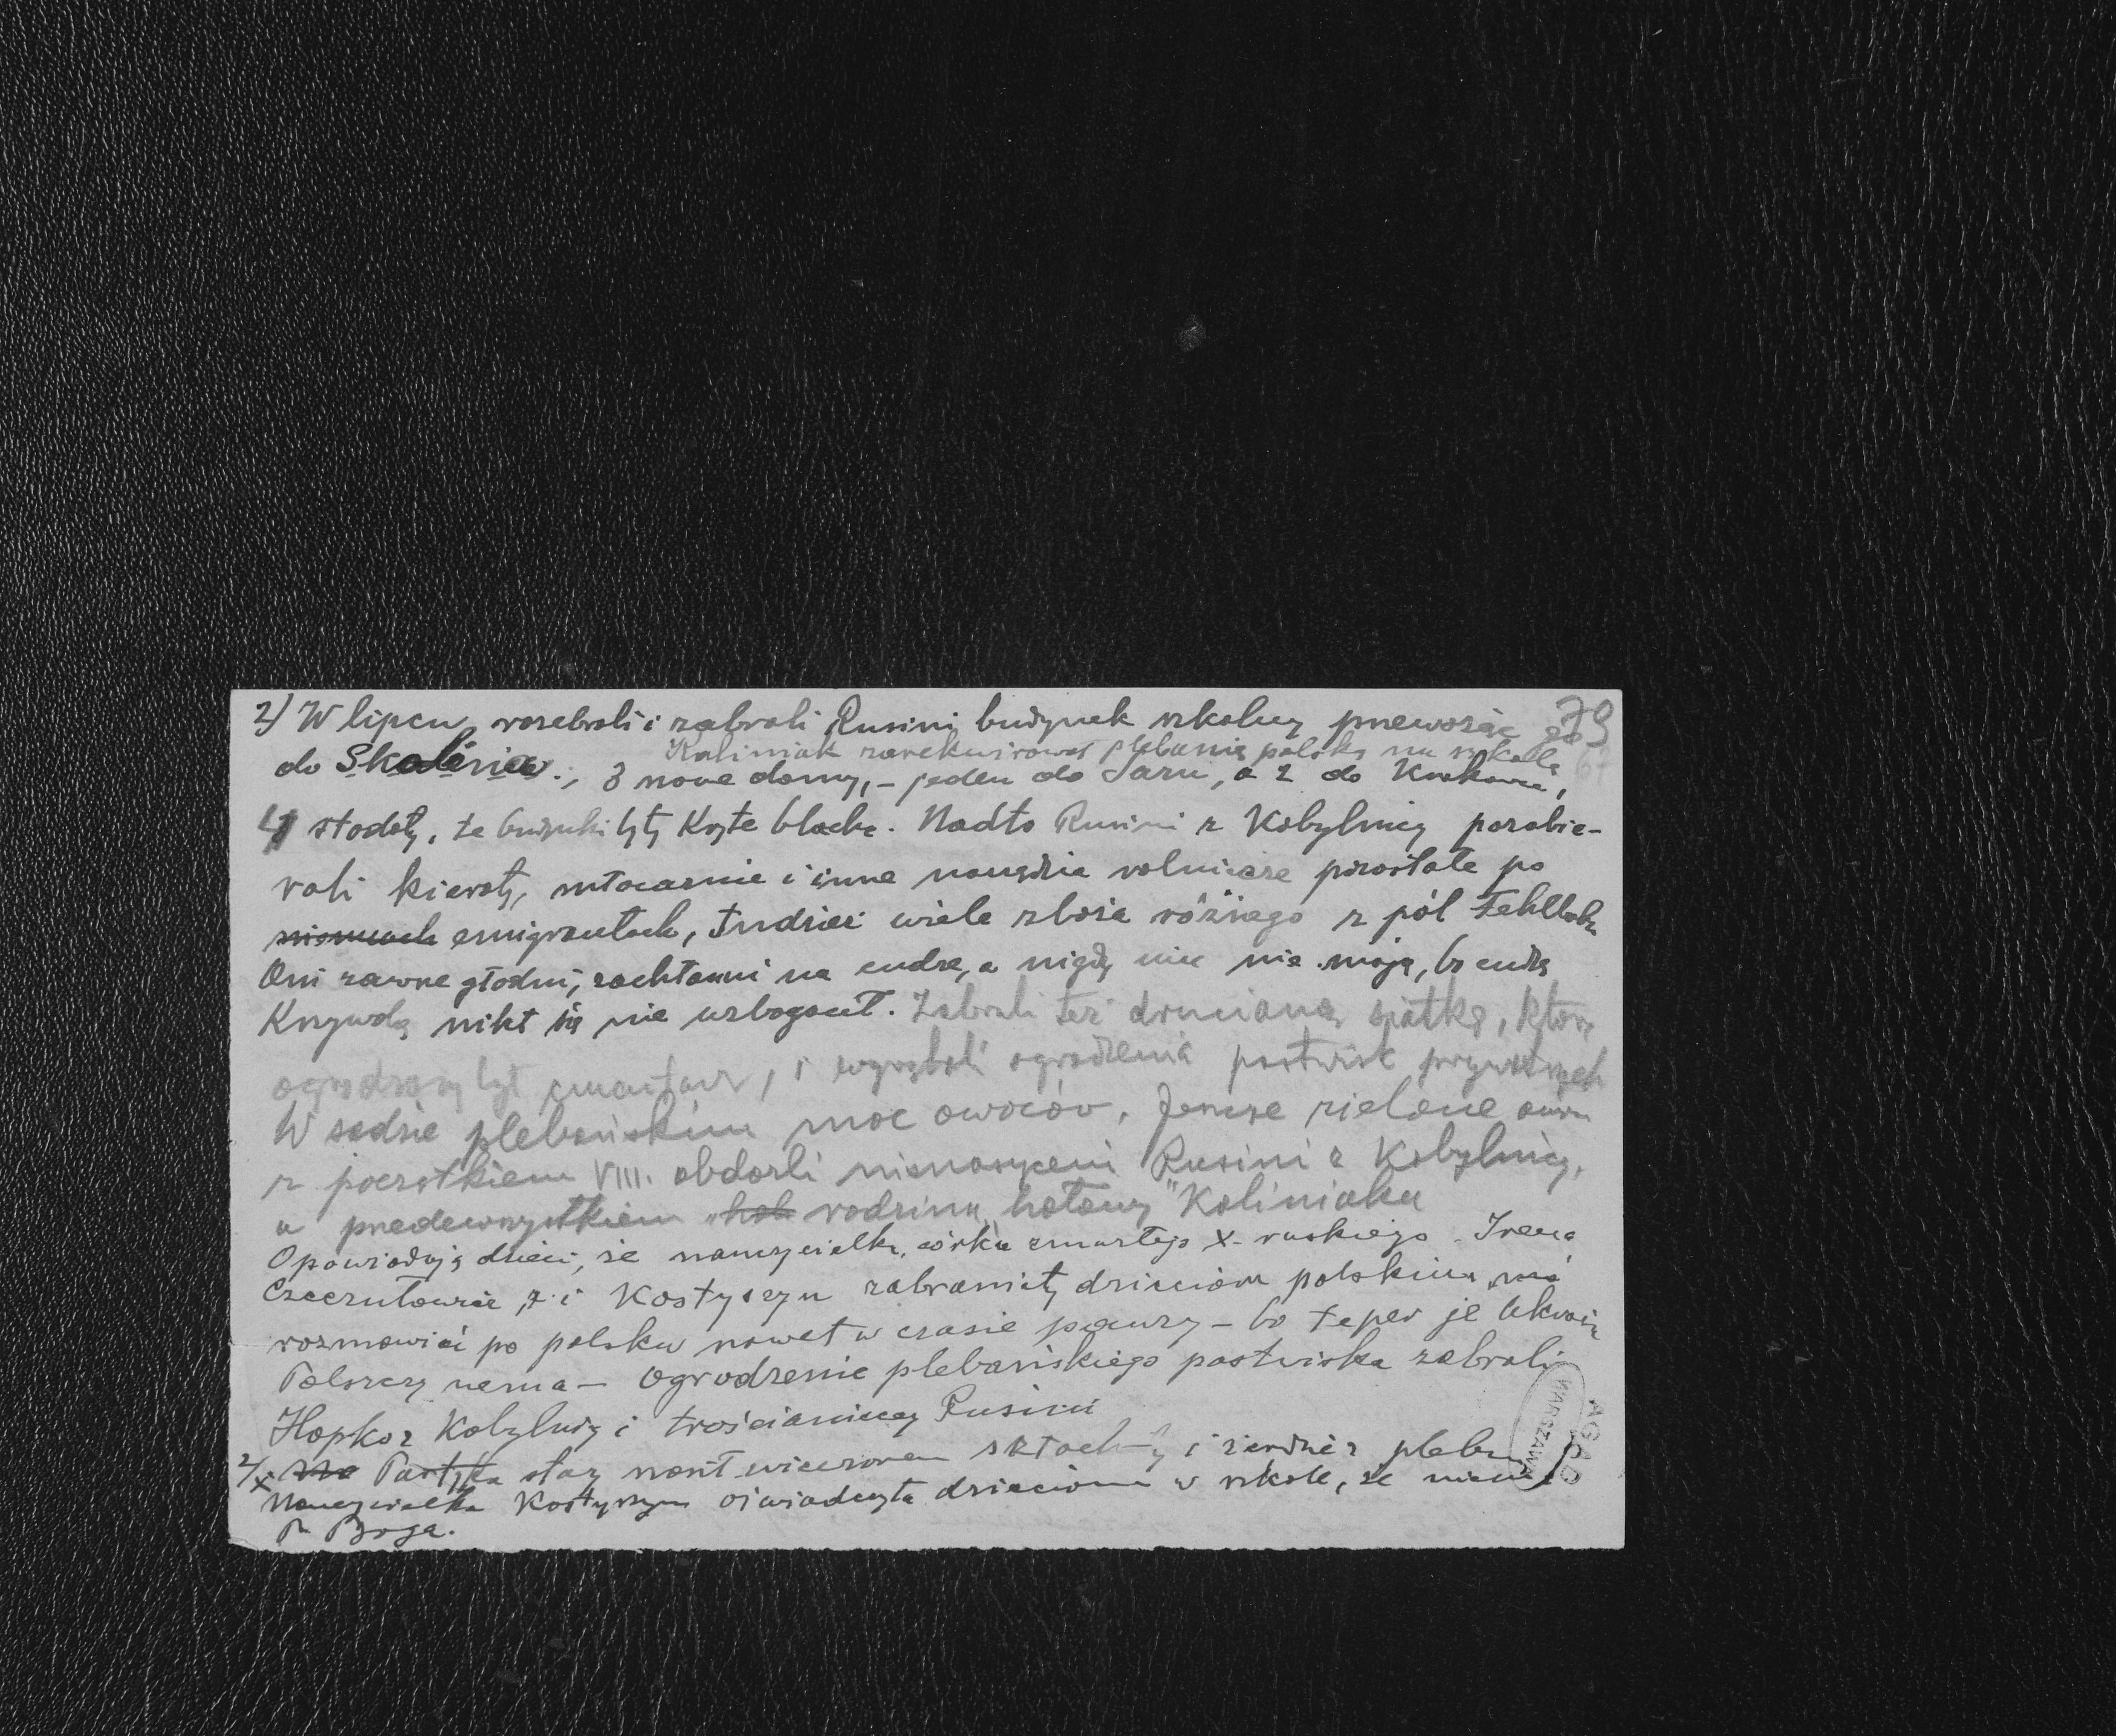 79
2) W lipcu rozebrali i zabrali Rusini budynek szkolny przewożąc go
Kaliniak zarekwirował plebanię polską na szkołę
do Skolina.; 3 nowe domy, – jeden do Saru, a 2 do
4 stodoły, te budynki były kryte blachą. Nadto Rusini z Kobylnicy pozabie-
rali kieraty, młocarnie i inne narzędzia rolnicze pozostałe po
emigrantach, tudzież wiele zboża różnego z pól
Oni zawsze głodni, zachłanni na cudze, a nigdy nic nie mają, bo cudzą
Krzywdą nikt się nie wzbogacił. Zabrali też drucianą siatkę, którą
ogrodzony był cmentarz, i ogrodzenia pastwisk prywatnych
W sadzie plebańskim moc owoców. Jeszcze zielone
z początkiem VIII. obdarli nienasyceni Rusini z Kobylnicy,
a przedewszystkiem rodzina "hołowy" Kaliniaka
Opowiadają dzieci, że nauczycielka, córka zmarłego X. ruskiego Irena
i Kostyszyn zabraniały dzieciom polskim
rozmawiać po polsku nawet w czasie pauzy – bo teper je Ukraina
Polszczy nema – Ogrodzenie plebańskiego pastwiska zabrali
Hopko z Kobylnicy i trościanieccy Rusini
2/X Pastyka stary nosił wieczorem i żerdzie z
Nauczycielka Kostyszyn oświadczyła dzieciom w szkole, że niema
P. Boga.
AGAD
WARSZAWA